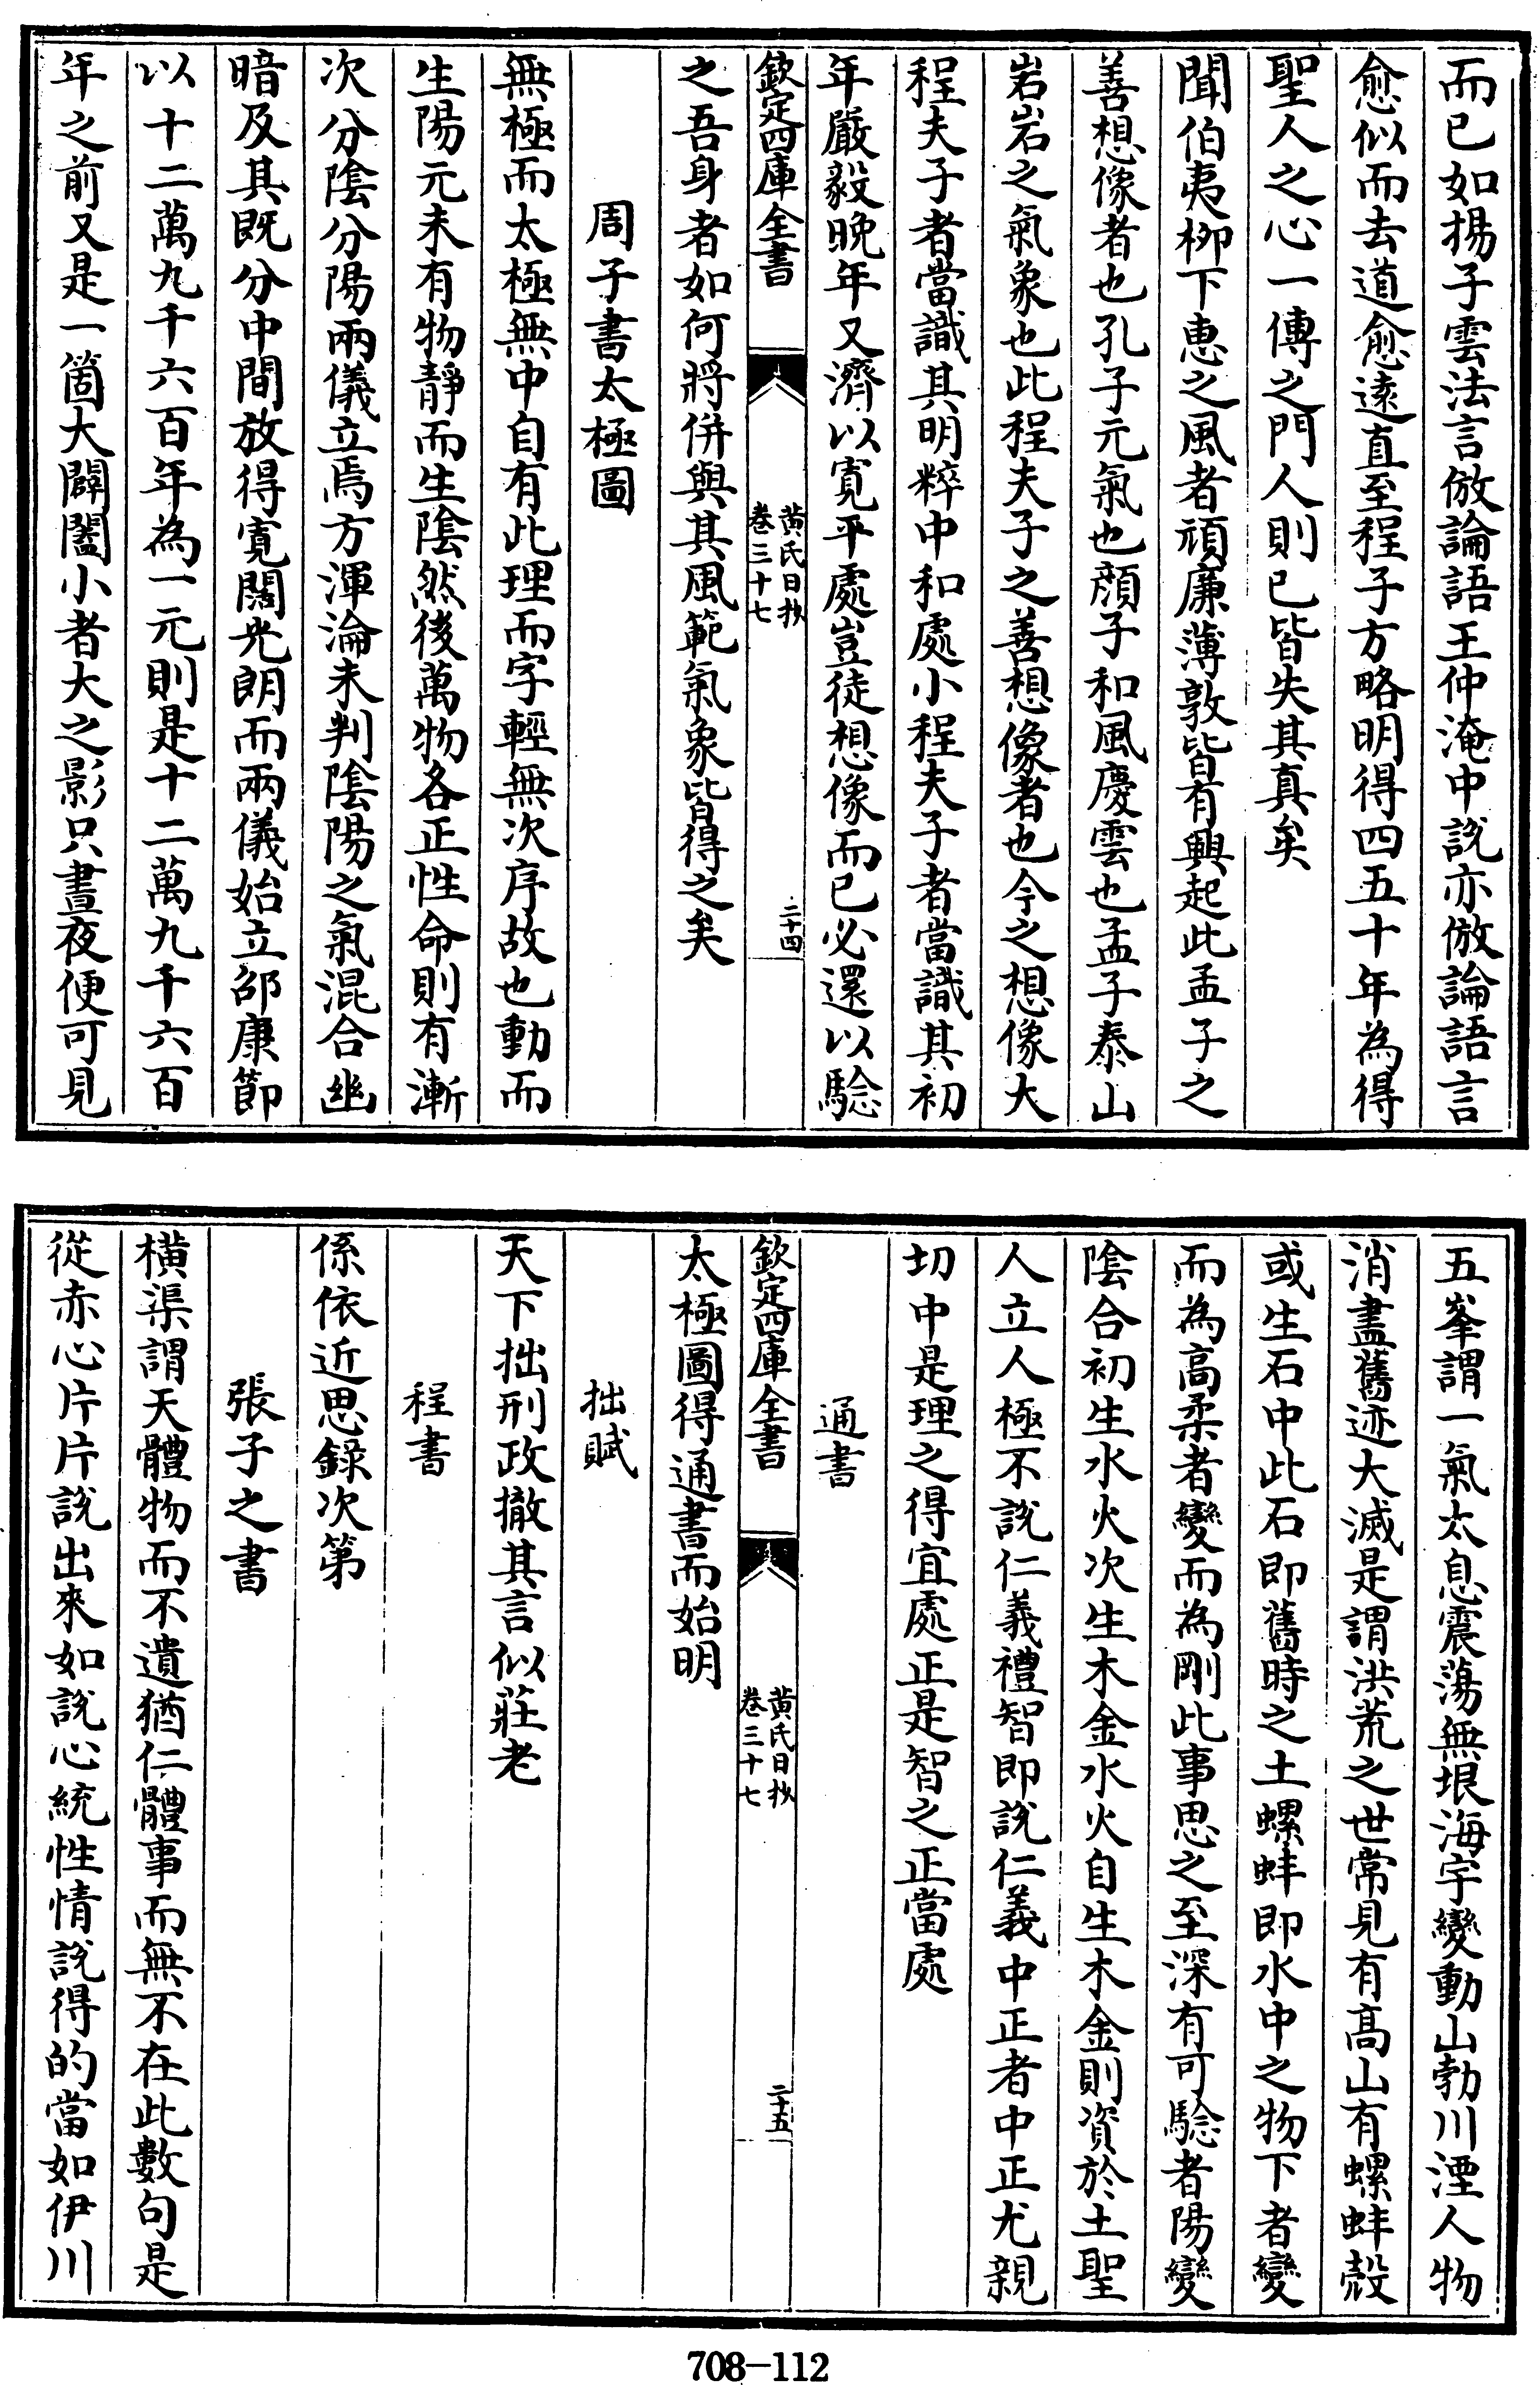 而已如揚子雲法言倣論語王仲淹中説亦倣論語言
愈似而去道愈逺直至程子方略明得四五十年為得
聖人之心一傳之門人則已皆失其真矣
聞伯夷柳下恵之風者頑廉薄敦皆有興起此孟子之
善想像者也孔子元氣也顔子和風慶雲也孟子泰山
岩岩之氣象也此程夫子之善想像者也今之想像大
程夫子者當識其明粹中和處小程夫子者當識其初
年嚴毅晩年又濟以寛平處豈徒想像而已必還以驗
欽定四庫全書
黄氏日抄
卷三十七
二十四
之吾身者如何將併與其風範氣象皆得之矣
周子書太極圖
無極而太極無中自有此理而字輕無次序故也動而
生陽元未有物靜而生隂然後萬物各正性命則有漸
次分隂分陽兩儀立焉方渾淪未判隂陽之氣混合幽
暗及其既分中間放得寛闊光朗而兩儀始立邵康節
以十二萬九千六百年為一元則是十二萬九千六百
年之前又是一箇大闢闔小者大之影只晝夜便可見
五峯謂一氣太息震蕩無垠海宇變動山勃川湮人物
消盡舊迹大滅是謂洪荒之世常見有髙山有螺蚌殻
或生石中此石即舊時之土螺蚌即水中之物下者變
而為高柔者變而為剛此事思之至深有可驗者陽變
隂合初生水火次生木金水火自生木金則資於土聖
人立人極不説仁義禮智即説仁義中正者中正尤親
切中是理之得宜處正是智之正當處
通書
欽定四庫全書
黄氏日抄
卷三十七
二十五
太極圖得通書而始明
拙賦
天下拙刑政撤其言似莊老
程書
係依近思録次第
張子之書
横渠謂天體物而不遺猶仁體事而無不在此數句是
從赤心片片説出來如説心統性情説得的當如伊川
708-112